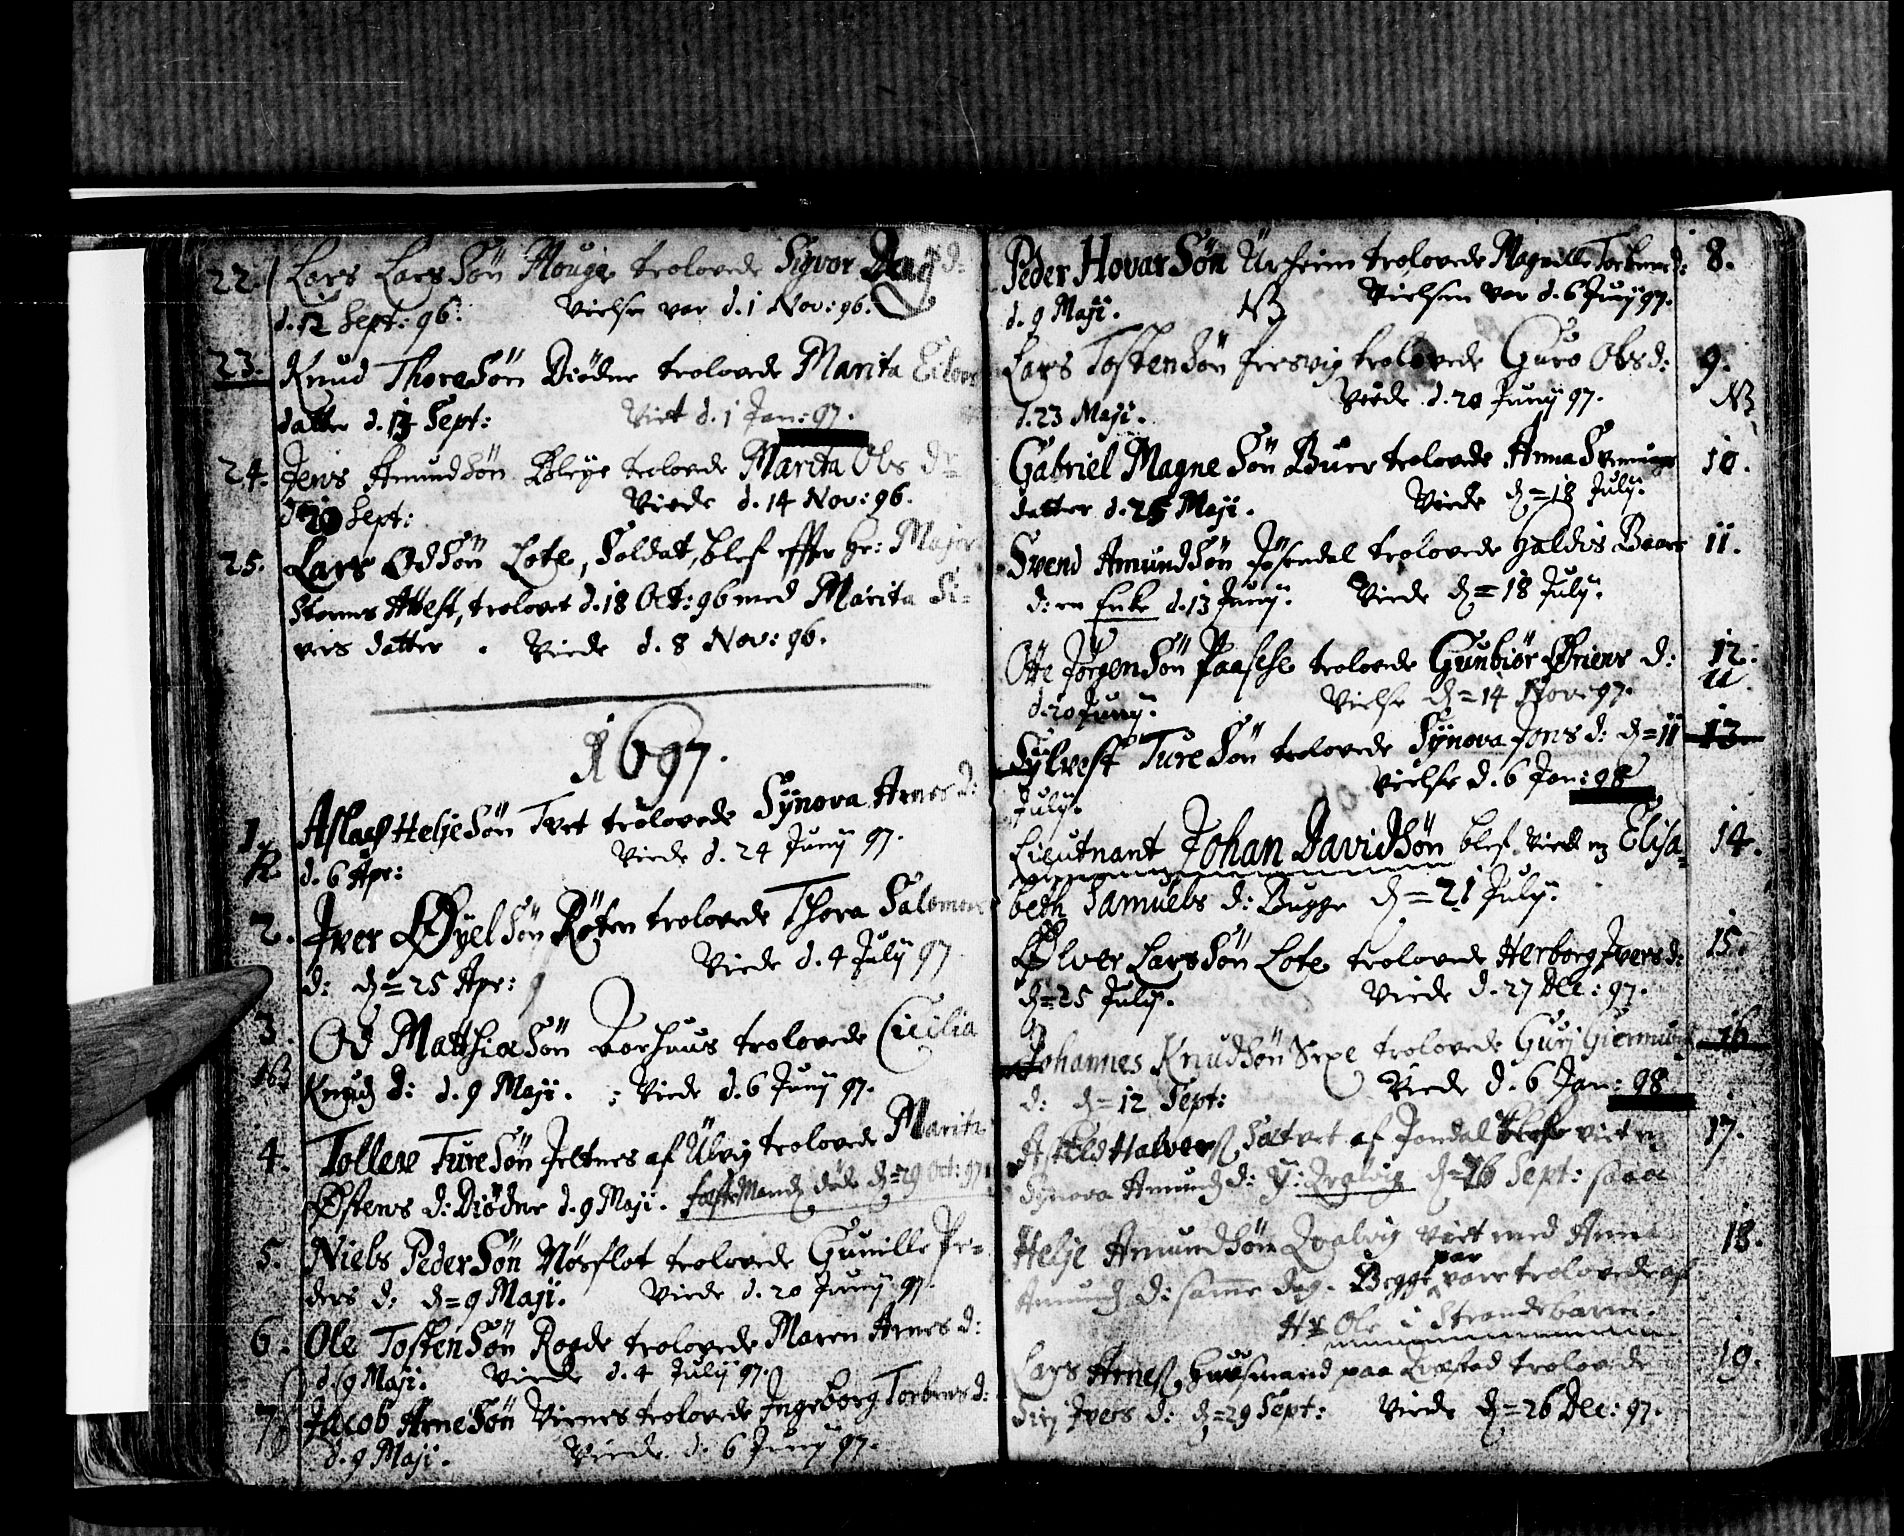 22. Lars Larssøn Houge trolovede Syvor Dags d:
d. 12 Sept: 96. Vielse var d. 1 Nov: 96.
23. Knud Thoresøn Diødne trolovede Marita Eilers
datter d. 13 Sept: Viet d. 1 Jan: 97.
24. Jens Amundsøn Bleye trolovede Marita Obs dr
d. 20 Sept: Viede d. 14 Nov: 96.
25. Lars Odsøn Lote, Soldat, blef effter Hr: Major
Storms Attest, trolovet d. 18 Oct: 96 med Marita Si-
vers datter. Viede d. 8 Nov: 96.
1697.
1. Aslach Heljesøn Tvet trolovede Synova Arnes d:
d. 6 Apr: Viede d. 24 Junij 97.
2. Iver Øyelsøn Røten trolovede Thora Salomons
d: d = 25 Apr: Viede d. 4 Julij 97
3. Od Matthiæsøn Aarhuus trolovede Cicilia
NB Knudz d: d. 9 Maji. Viede d. 6 Junij 97.
4. Tollew Turesøn Jeltnes af Ulvig trolovede Marita
Østens d: Diødne d. 9 Maji. fæstemanden døde d = 29 Oct: 97
5. Niels Pedersøn Nøsflot trolovede Gunille Pe-
ders d: d = 9 Maji. Viede d. 20 Junij 97.
6. Ole Tostensøn Rogde trolovede Maren Arnes d:
d. 9 Maji. Viede d. 4 Julij 97.
7. Jacob Arnesøn Virnes trolovede Ingeborg Torbens d:
d. 9 Maji. Viede d. 6 Junij 97.
Peder Hovarsøn Urheim trolovede Magnille Torbens d: 8.
d. 9 Maji. NB Vielsen var d. 6 Junij 97.
Lars Tostensøn Jersvig trolovede Guro Obs d: 9.
d. 23 Maji. Viede d. 20 Junij 97. NB
Gabriel Magnesøn Buer trolovede Anna Svenings 10.
datter d. 25 Maji. Viede d = 18 Julij.
Svend Amundsøn Jøsendal trolovede Haldis Baars 11.
d: en Enke d. 13 Junij. Viede d = 18 Julij.
Otte Jørgensøn Paasche trolovede Gunbiør Øriens d: 12.
d. 20 Junij. Vielse d = 14 Nov: 97.
Sylvest Turesøn trolovede Synova Jons d: d = 11 13
Julij. Vielse d. 6 Jan: 98
Lieutnant Johan Davidsøn blef viet m Elisa- 14.
beth Samuels d: Bugge d = 21 Julij.
Ølver Larssøn Lote trolovede Herborg Ivers d: 15.
d = 25 Julij. Viede d. 27 Dec: 97.
Johannes Knudsøn Sexe trolovede Guri Giermunds 16
d: d = 12 Sept: Viede d. 6 Jan: 98
Askild Halvers Sætvet af Jondal blef viet m 17.
Synova Amundz d: Qvalvig d = 26 Sept: saa
Helje Amundsøn Qvalvig viet med Anna 18.
Amundz d: samme dag. Begge par vare trolovede af
Hr Ole i Strandebarm.
Lars Arnes, Huusmand paa trolovede 19.
Siri Ivers d: d = 29 Sept: Viede d = 26 Dec: 97.